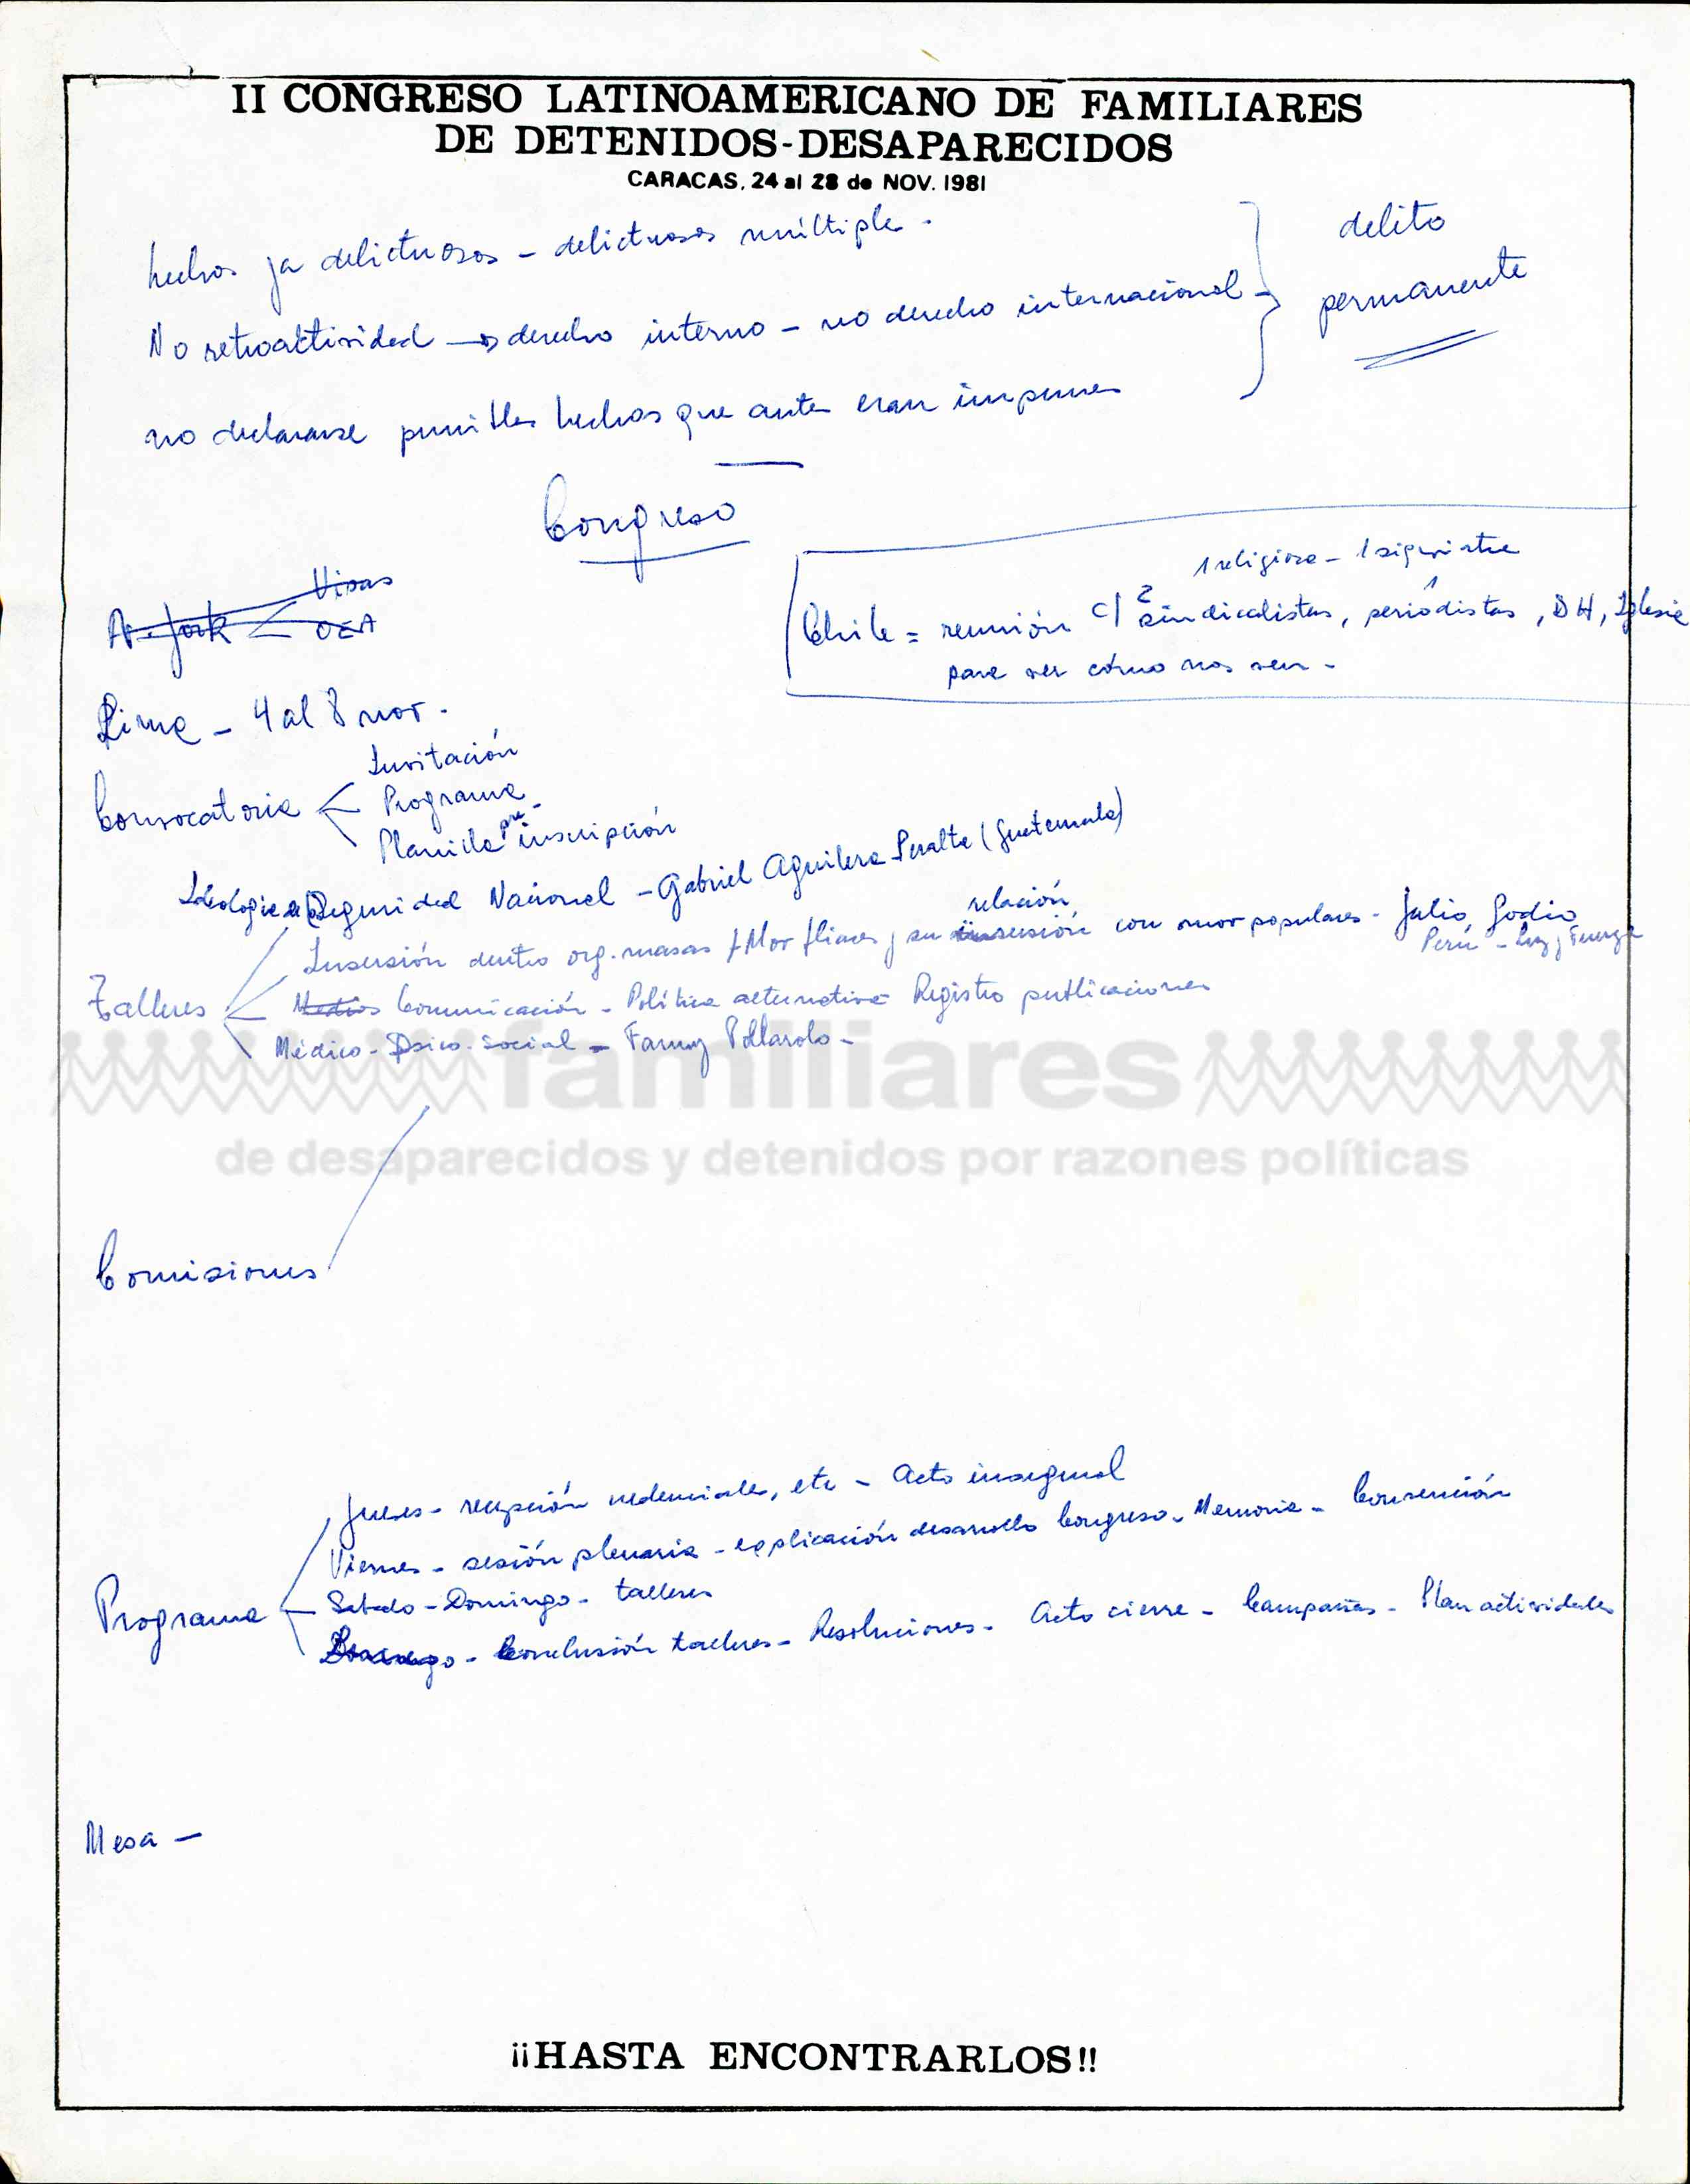 II CONGRESO LATINOAMERICANO DE FAMILIARES
DE DETENIDOS-DESAPARECIDOS
CARACAS, 24 al 28 de NOV. 1981
hechos ya delictuosos - delictuosos múltiples -
delito
permanente
No retroactividad → derecho interno - no derecho internacional -
no declararse punibles hechos que antes eran impunes
Congreso
N. York
Visas
OEA
1 religioso - 1 siquiatra
Chile = reunión c/ 2 sindicalistas, 1 periodistas, DH, Iglesia
para ver cómo nos ven -
Lima - 4 al 8 nov.
Convocatoria
Invitación
Programa
Planilla pre-inscripción
Ideología de la Seguridad Nacional - Gabriel Aguilera Peralta (Guatemala)
Inserción dentro org. masas y su relación con mov populares - Julio Godio
Perú - Luz y Fuerza
Talleres
Medios Comunicación - Política alternativa Registro publicaciones
Médico - Psico. Social - Fanny Pollarolo -
familiares
de desaparecidos y detenidos por razones políticas
Comisiones
Programa
Jueves - recepción credenciales, etc - Acto inaugural
Viernes - sesión plenaria - explicación desarrollo Congreso - Memoria - Convención
Sábado - Domingo - talleres
Domingo - Conclusión talleres - Resoluciones - Acto cierre - Campañas - Plan actividades
Mesa -
¡¡HASTA ENCONTRARLOS!!